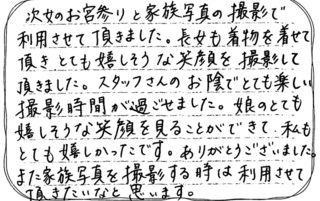 次女のお宮参りと家族写真の撮影で
利用させて頂きました。長女も着物を着せて
頂きとても嬉しそうな笑顔を撮影して
頂きました。スタッフさんのお陰でとても楽しい
撮影時間が過ごせました。娘のとても
嬉しそうな笑顔を見ることができて私も
とても嬉しかったです。ありがとうございました。
また家族写真を撮影する時は利用させて
頂きたいなと思います。